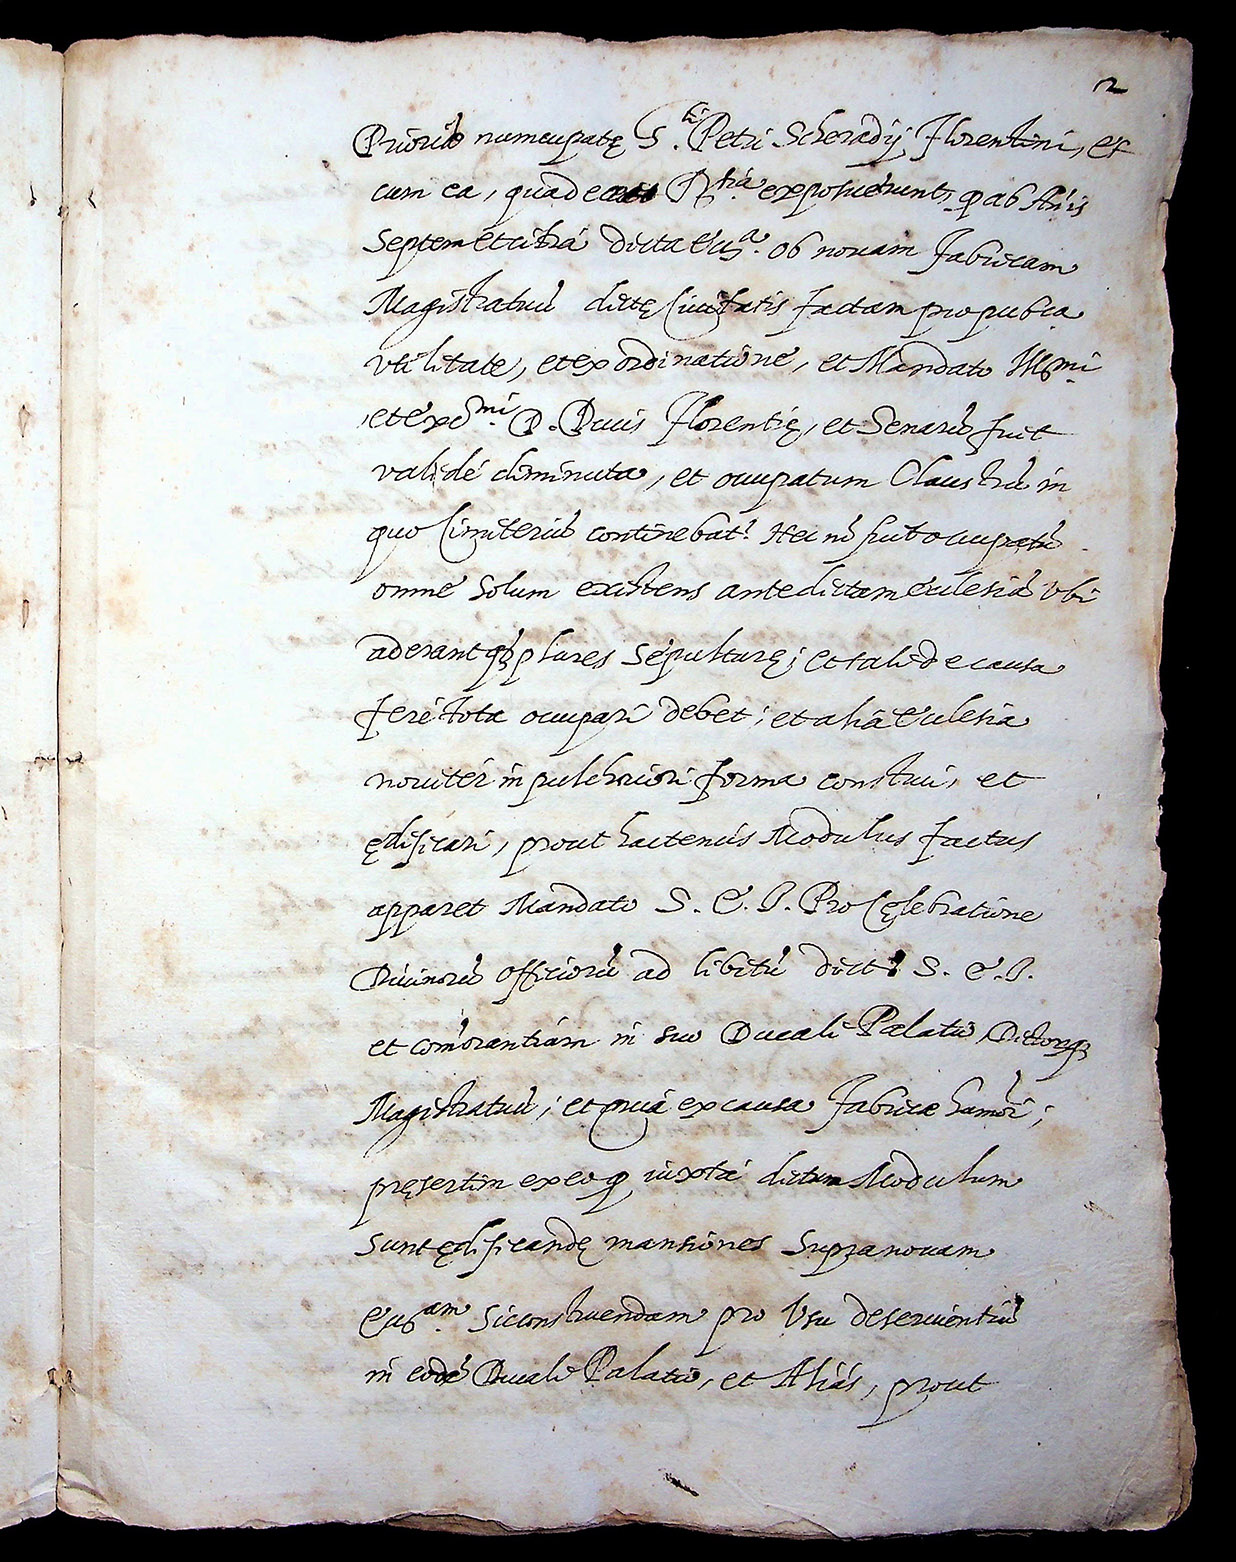 2
Prioriæ nuncupatę S.ti Petri Scheradij Florentini, et
cum ea, qua decet Rtia exposuerunt, q ab Anis
septem et citrà dicta Eccla. ob novam fabricam
Magistratuũ dictę Civitatis factam pro pub.ca
utilitate, et ex ordinatione, et Mandato Illmi.
et excmi. D. Ducis Florentię, et Senarũ fuit
validé diminuta, et occupatum Claustrũ in
quo Cimiteriũ continebatr. Hec nõ fuit occupatũ
omne solum existens ante dictam ecclesiã ubi
aderant plures sepulturę; et tali de causa
feré tota occupari debet; et alia Ecclesia
noviter in pulchriori forma construi, et
ędificari, prout hactenus Modulus factus
apparet Mandato S. E. I. Pro Cęlebratione
Divinorũ Officiorũ ad libitũ dict S. E. I.
et com̃orantiam in suo Ducali Palatio, Dictorq
Magistratuũ; et quia ex causa fabricæ hm̃oi;
pręsertim ex eo q iuxtà dictum Modulum
sunt ędificandę mansiones supra novam
Ecc.am sic construendam pro Usu deservientiũ
in eodẽ Ducali Palatio, et Aliàs, prout